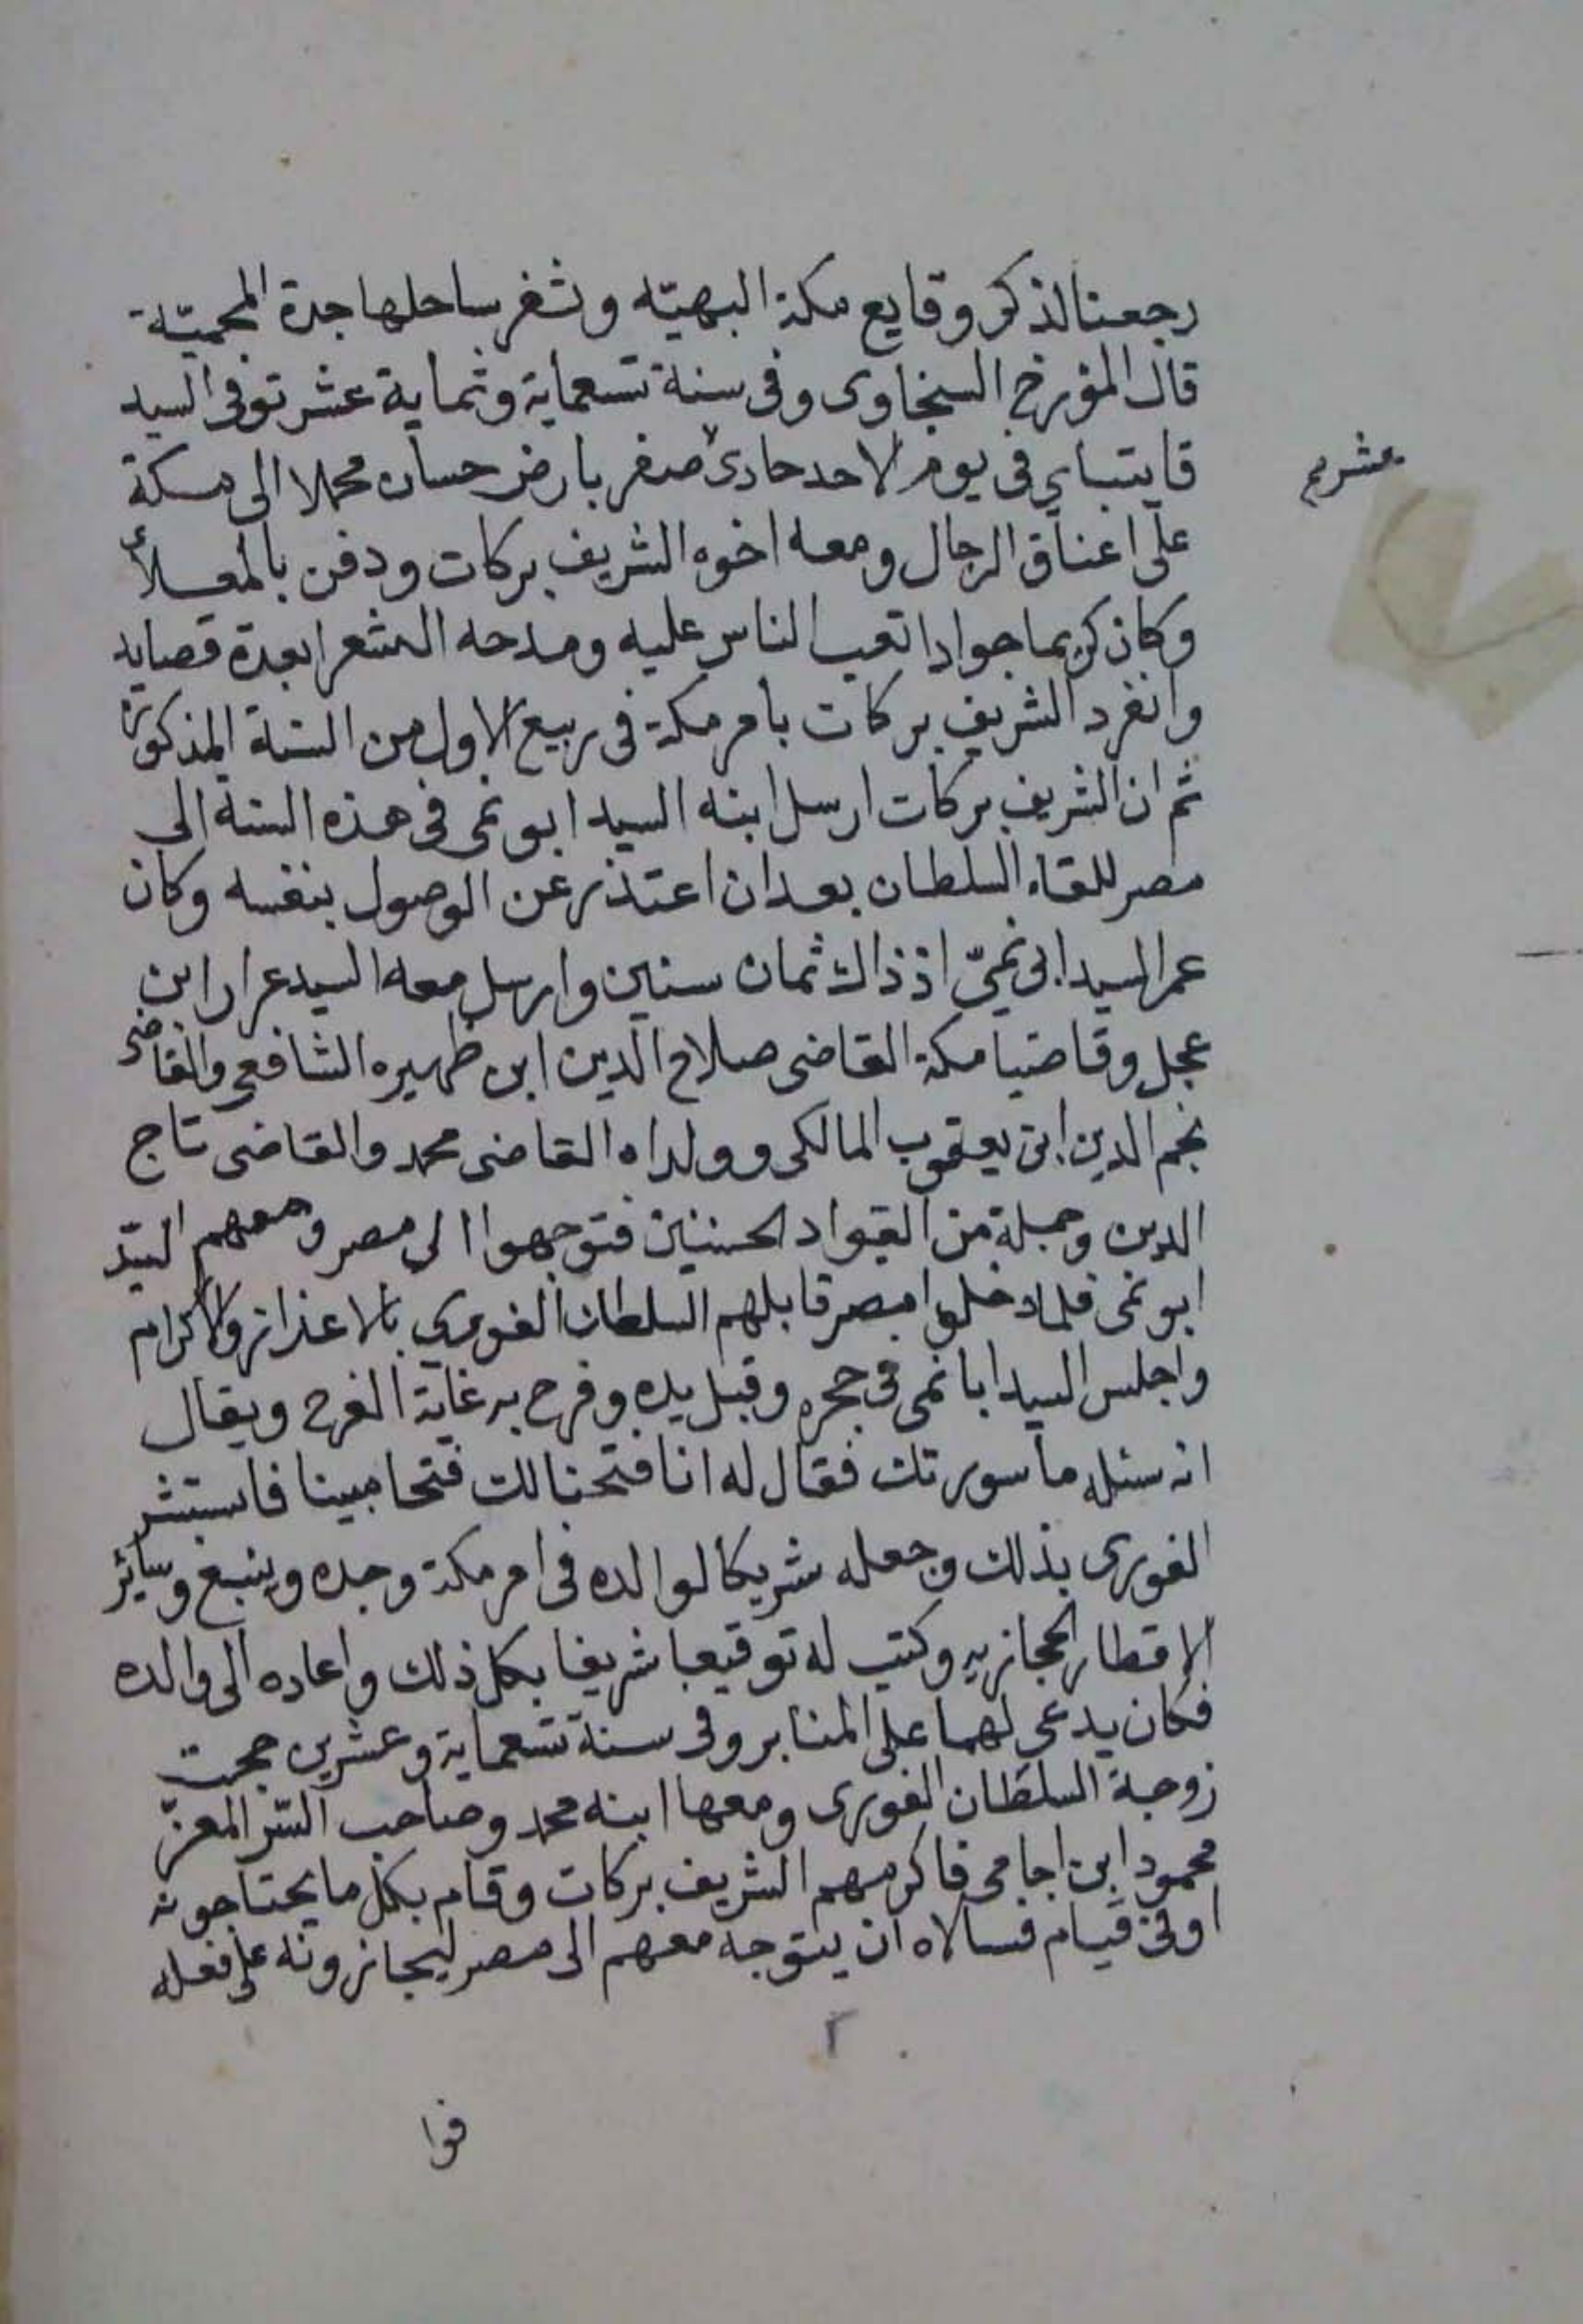 رجعنا لذكر وقايع مكة البهيّه وثغر ساحلها جدة المحميّة
قال المؤرخ السنجاوى وفى سنة تسعماية وثماية عشر توفى السيد
قايتباي فى يوم الاحد حادى صفر بارض حسان محملا الى مكة
عشرين
على اعناق الرجال ومعه اخوه الشريف بركات ودفن بالمعلاة
وكان كريما جوادا تعب الناس عليه ومدحه الشعرا بعدة قصايد
وانفرد الشريف بركات بامر مكة فى ربيع الاول من السنة المذكورة
ثم ان الشريف بركات ارسل ابنه السيد ابو نمى فى هذه السنة الى
مصر للقاء السلطان بعد ان اعتذر عن الوصول بنفسه وكان
عمر السيد ابى نميّ اذ ذاك ثمان سنين وارسل معه السيد عرار ابن
عجل وقاضيا مكة القاضى صلاح الدين ابن ظهيره الشافعى والقاضى
نجم الدين ابن يعقوب المالكى وولداه القاضى محمد والقاضى تاج
الدين وجملة من القواد الحسنين فتوجهوا الى مصر ومعهم السيّد
ابو نمى فلما دخلوا مصر قابلهم السلطان الغوري بالاعزاز والاكرام
واجلس السيد ابا نمى فى حجره وقبل يده وفرح به غاية الفرح ويقال
انه سئله ما سورتك فقال له انا فتحنا لك فتحا مبينا فاستبشر
الغورى بذلك وجعله شريكا لوالده فى امر مكة وجده وينبع وسائر
الاقطار الحجازيه وكتب له توقيعا شريفا بكل ذلك واعاده الى والده
فكان يدعى لهما على المنابر وفى سنة تسعماية وعشرين حجت
زوجة السلطان الغورى ومعها ابنه محمد وصاحب السّر المعزّ
محمود ابن اجا مى فاكرمهم الشريف بركات وقام بكل ما يحتاجونه
اوفى قيام فسالاه ان يتوجه معهم الى مصر ليجازونه على فعله
فوا